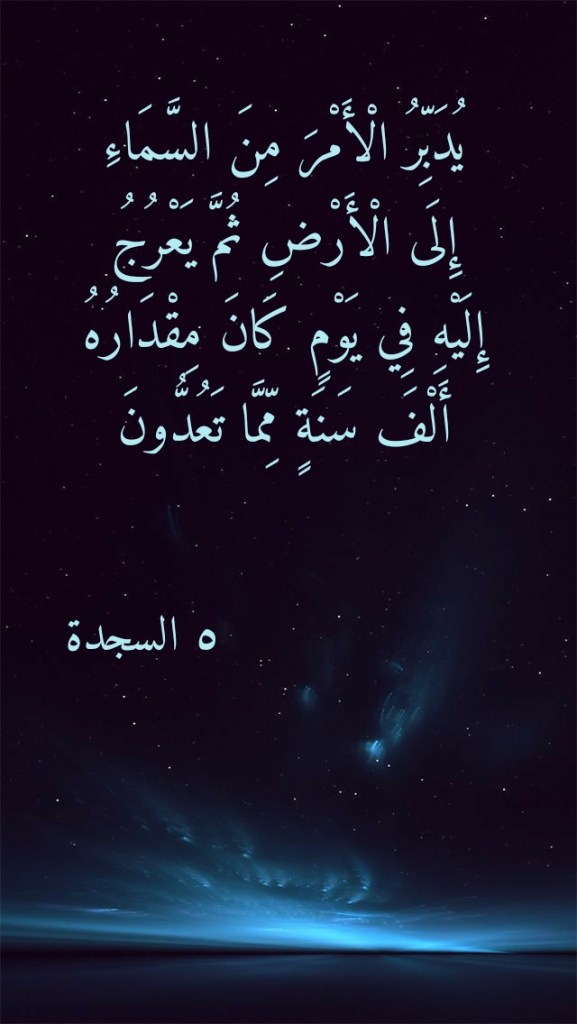 يُدَبِّرُ الْأَمْرَ مِنَ السَّمَاءِ
إِلَى الْأَرْضِ ثُمَّ يَعْرُجُ
إِلَيْهِ فِي يَوْمٍ كَانَ مِقْدَارُهُ
أَلْفَ سَنَةٍ مِّمَّا تَعُدُّونَ
٥ السجدة